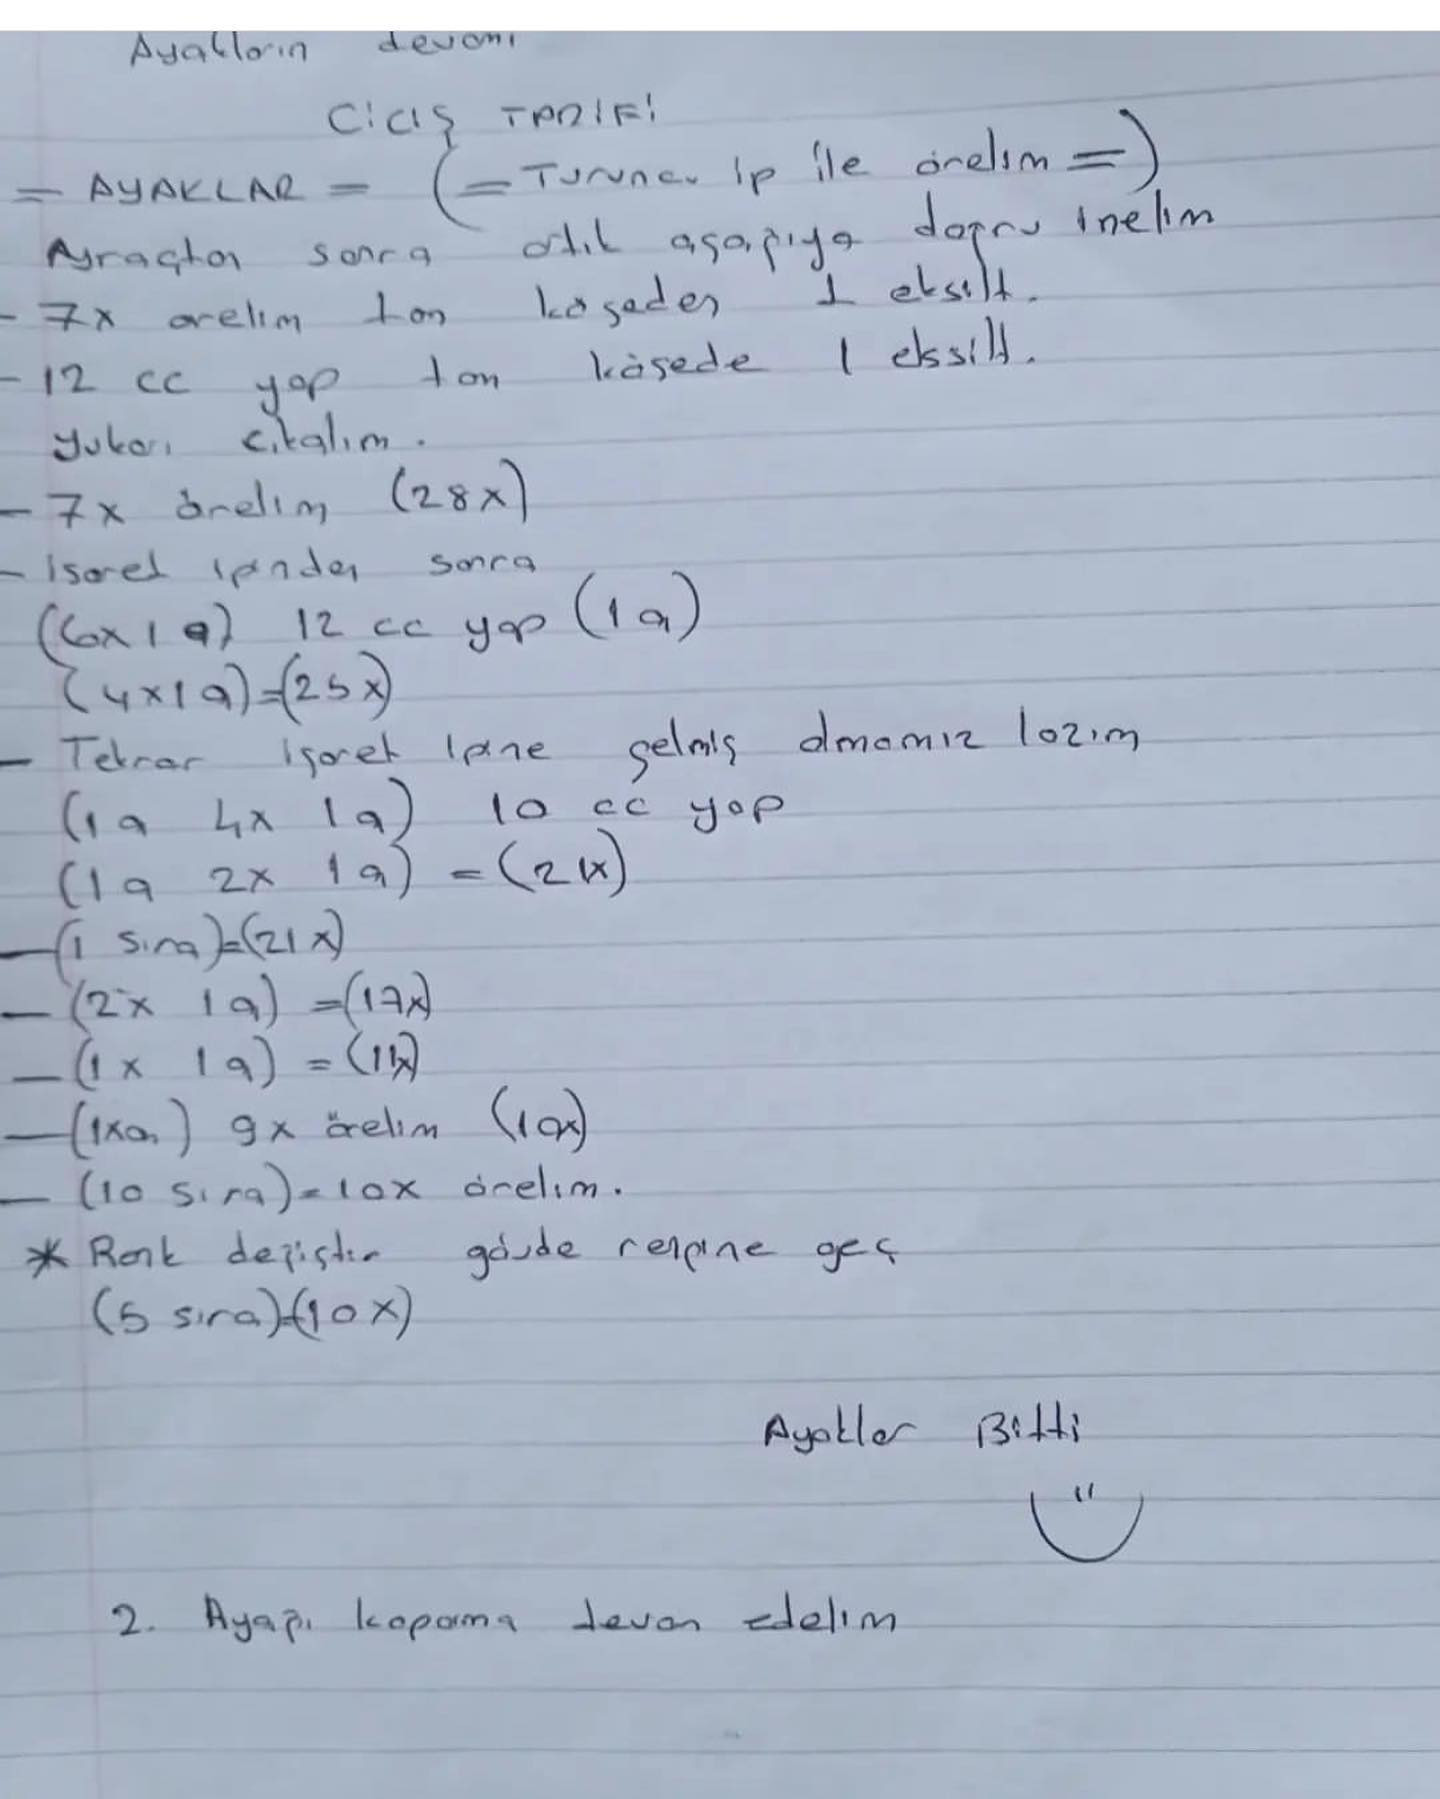 Ayakların devamı
CİCİŞ TARİFİ
= AYAKLAR = (= Turuncu ip ile örelim =)
Ayraçtan sonra artık aşağıya doğru inelim
- 7x örelim tam köşeden 1 eksilt.
- 12 cc yap tam köşede 1 eksilt.
yukarı çıkalım.
- 7x örelim (28x)
- işaret ipinden sonra
(6x1a) 12 cc yap (1a)
(4x1a)=(25x)
- Tekrar işaret ipine gelmiş olmamız lazım
(1a 4x 1a) 10 cc yap
(1a 2x 1a) = (21x)
- (1 sıra)=(21x)
- (2x 1a) =(17x)
- (1x 1a) = (11x)
- (1xa) 9x örelim (10x)
- (10 sıra)=10x örelim.
* Renk değiştir gövde rengine geç
(5 sıra)=(10x)
Ayaklar Bitti
2. Ayağı koparma devam edelim